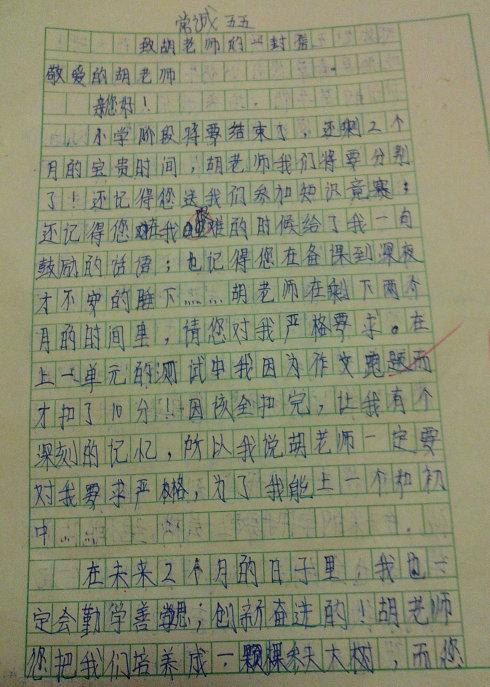 常诚 五五
致胡老师的一封信
敬爱的胡老师
亲您好！
小学阶段将要结束了，还剩2个
月的宝贵时间，胡老师我们将要分别
了！还记得您送我们参加知识竞赛；
还记得您在我困难的时候给了我一句
鼓励的话语；也记得您在备课到深夜
才不安的睡下……胡老师在剩下两个
月的的时间里，请您对我严格要求。在
上一单元的测试中我因为作文跑题而
才扣了10分！因该全扣完，让我有个
深刻的记忆，所以我说胡老师一定要
对我要求严格，为了我能上一个和初
中……
在未来2个月的日子里，我也一
定会勤学善思；创新奋进的！胡老师
您把我们培养成一颗棵天大树，而您